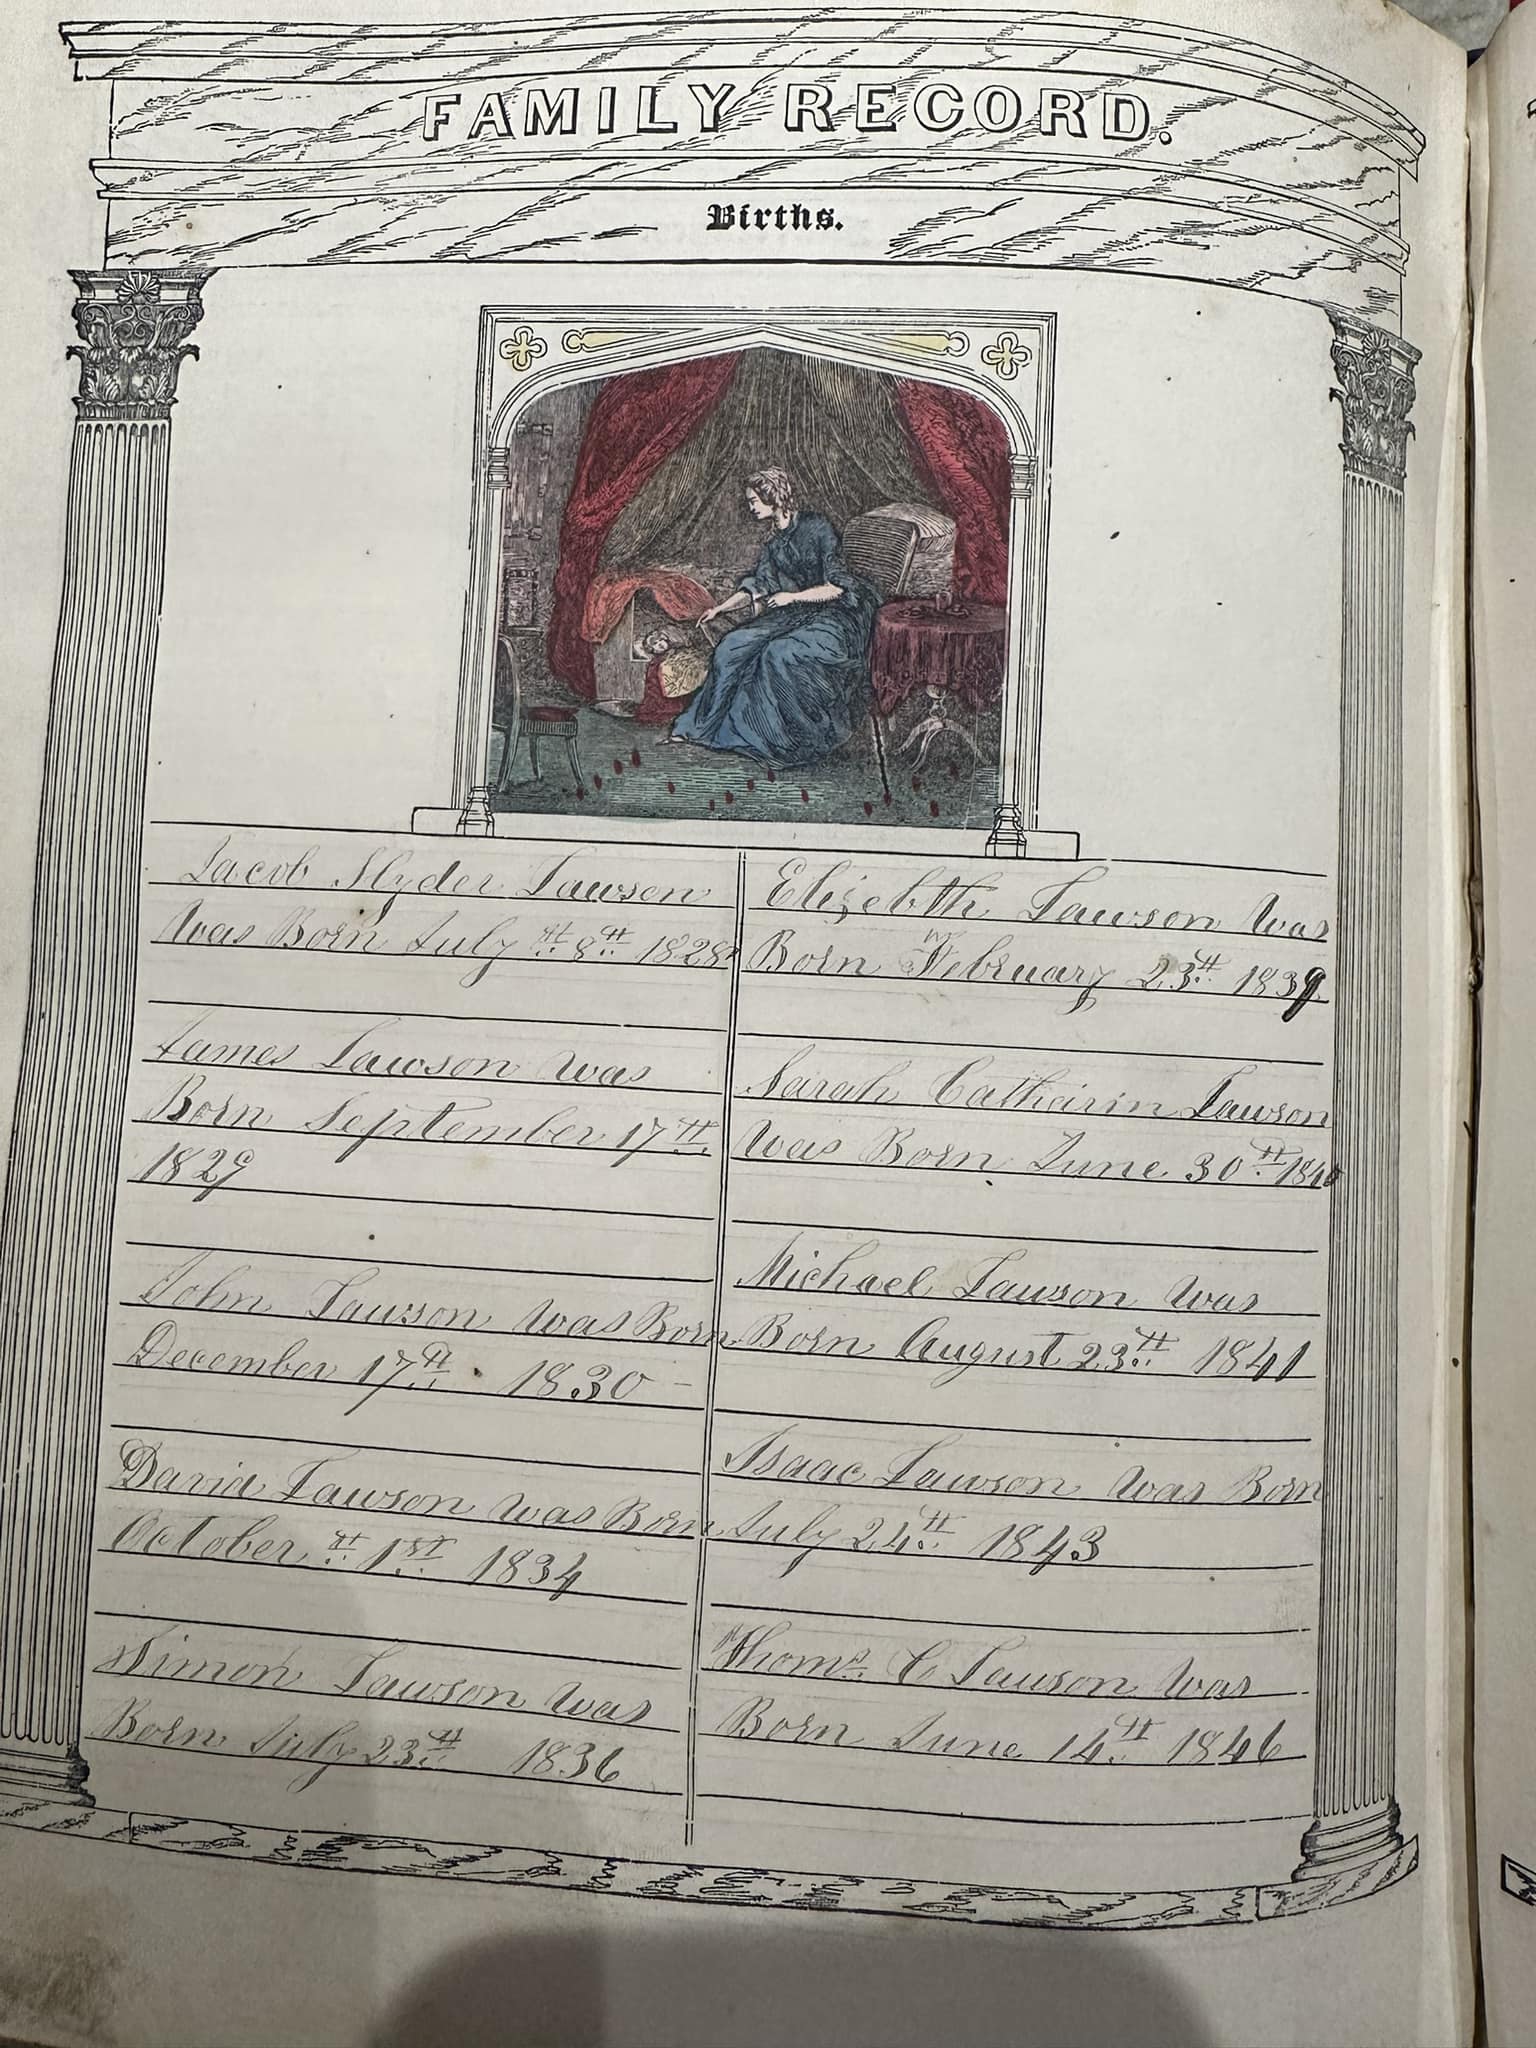 FAMILY RECORD.
Births.
Jacob Slyder Lawson
Was Born July th 8th 1828
James Lawson was
Born September 17th
1829
John Lawson was Born
December 17th 1830 –
David Lawson was Born
October th 1st 1834
Simon Lawson was
Born July 23th 1836
Elizebth Lawson was
Born February 23th 1839
Sarah Catharin Lawson
was Born June 30th 1840
Michael Lawson was
Born August 23th 1841
Isaac Lawson was Born
July 24th 1843
Thoms. C Lawson was
Born June 14th 1846